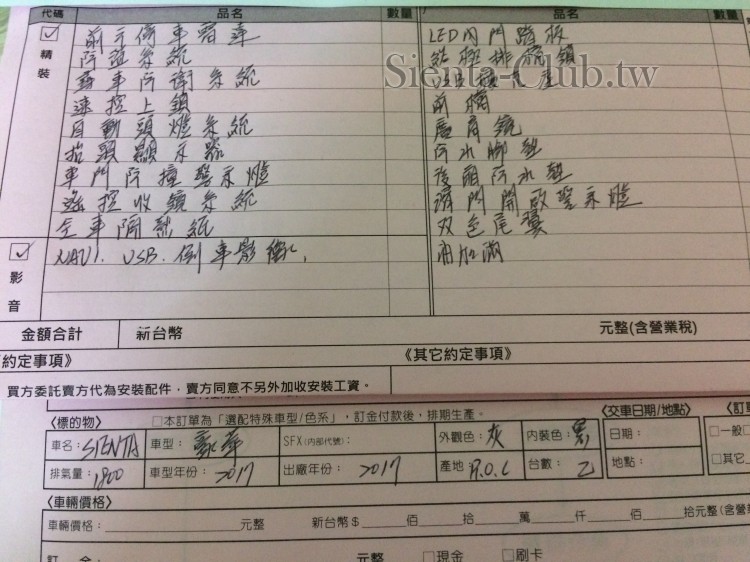 代碼 品名 數量 品名 數量
精裝
防盜系統
速控上鎖
自動頭燈系統
抬頭顯示器
車門防撞警示燈
遙控收鏡系統
全車隔熱紙
LED內門踏板
Sienta-Club.tw
廣角鏡
防水腳墊
後廂防水墊
滑門開啟警示燈
双色尾翼
油加滿
影音
NAVI. USB. 倒車影
金額合計 新台幣 元整(含營業稅)
約定事項》 《其它約定事項》
買方委託賣方代為安裝配件，賣方同意不另外加收安裝工資。
〈標的物〉 □本訂單為「選配特殊車型/色系」，訂金付款後，排期生產。 〈交車日期/地點〉 〈訂
車名：SIENTA 車型：豪華 SFX(內部代號)： 外觀色：灰 內裝色：黑 日期： □一般
排氣量：1800 車型年份：2017 出廠年份：2017 產地：R.O.C 台數：乙 地點： □其它
〈車輛價格〉
車輛價格： 元整 新台幣$ 佰 拾 萬 仟 佰 拾元整(含營
訂 金： 元整 □現金 □刷卡